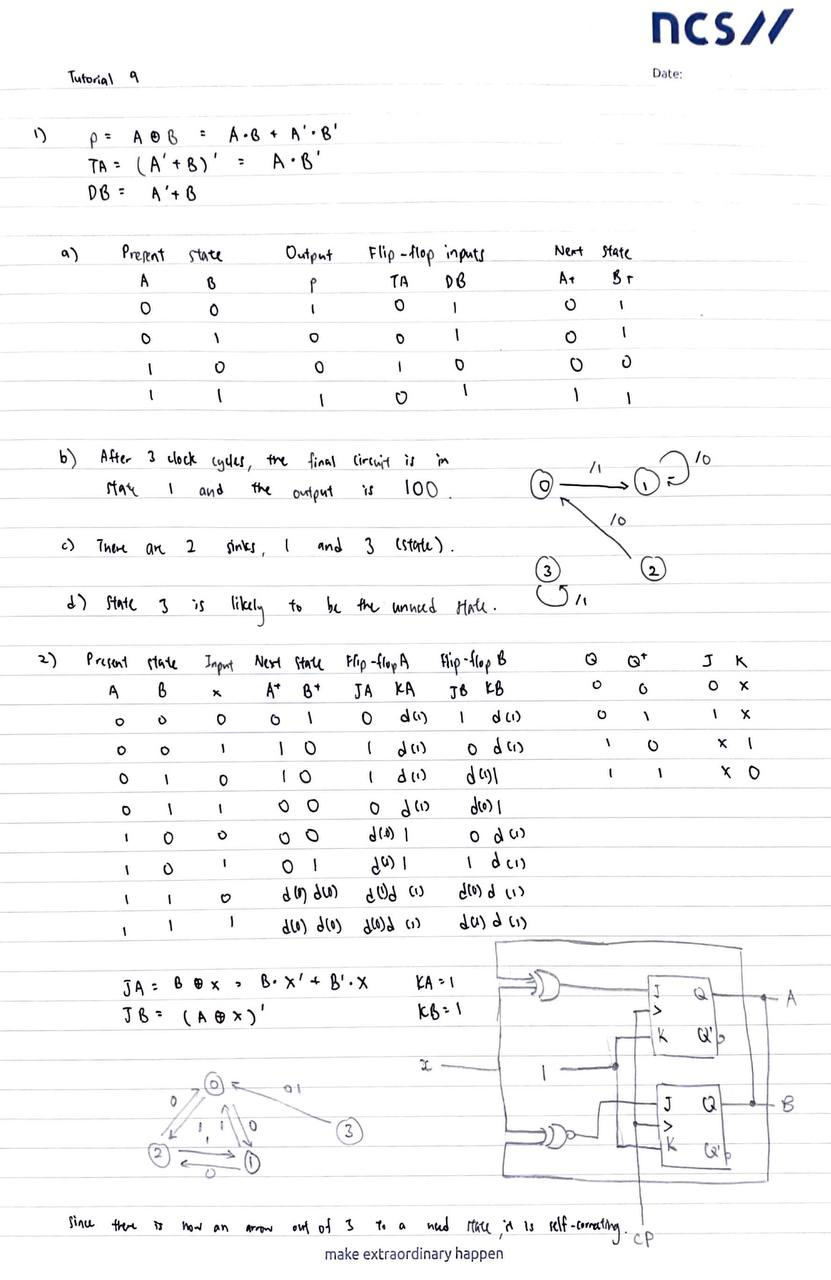 ncs//
Tutorial 9
Date:
1) P = A ⊙ B = A·B + A'·B'
TA = (A'+B)' = A·B'
DB = A'+B
a) Present state Output Flip-flop inputs Next State
A B P TA DB A+ B+
0 0 1 0 1 0 1
0 1 0 0 1 0 1
1 0 0 1 0 0 0
1 1 1 0 1 1 1
b) After 3 clock cycles, the final circuit is in
state 1 and the output is 100.
0 /1 1 /0
/0
c) There are 2 sinks, 1 and 3 (state).
3 2
/1
d) State 3 is likely to be the unused state.
2) Present state Input Next State Flip-flop A Flip-flop B Q Q+ J K
A B x A+ B+ JA KA JB KB 0 0 0 x
0 0 0 0 1 0 d(1) 1 d(1) 0 1 1 x
0 0 1 1 0 1 d(1) 0 d(1) 1 0 x 1
0 1 0 1 0 1 d(1) d(1) 1 1 1 x 0
0 1 1 0 0 0 d(1) d(0) 1
1 0 0 0 0 d(0) 1 0 d(1)
1 0 1 0 1 d(1) 1 1 d(1)
1 1 0 d(0) d(0) d(1) d(1) d(0) d(1)
1 1 1 d(0) d(0) d(0) d(1) d(1) d(1)
JA = B ⊕ x = B·x' + B'·x KA = 1
JB = (A ⊕ x)' KB = 1
J Q A
>
K Q'
x 1
J Q B
>
K Q'
CP
0 0 0 1
1 1 0 3
2 1 1
0
Since there is now an arrow out of 3 to a used state, it is self-correcting.
make extraordinary happen